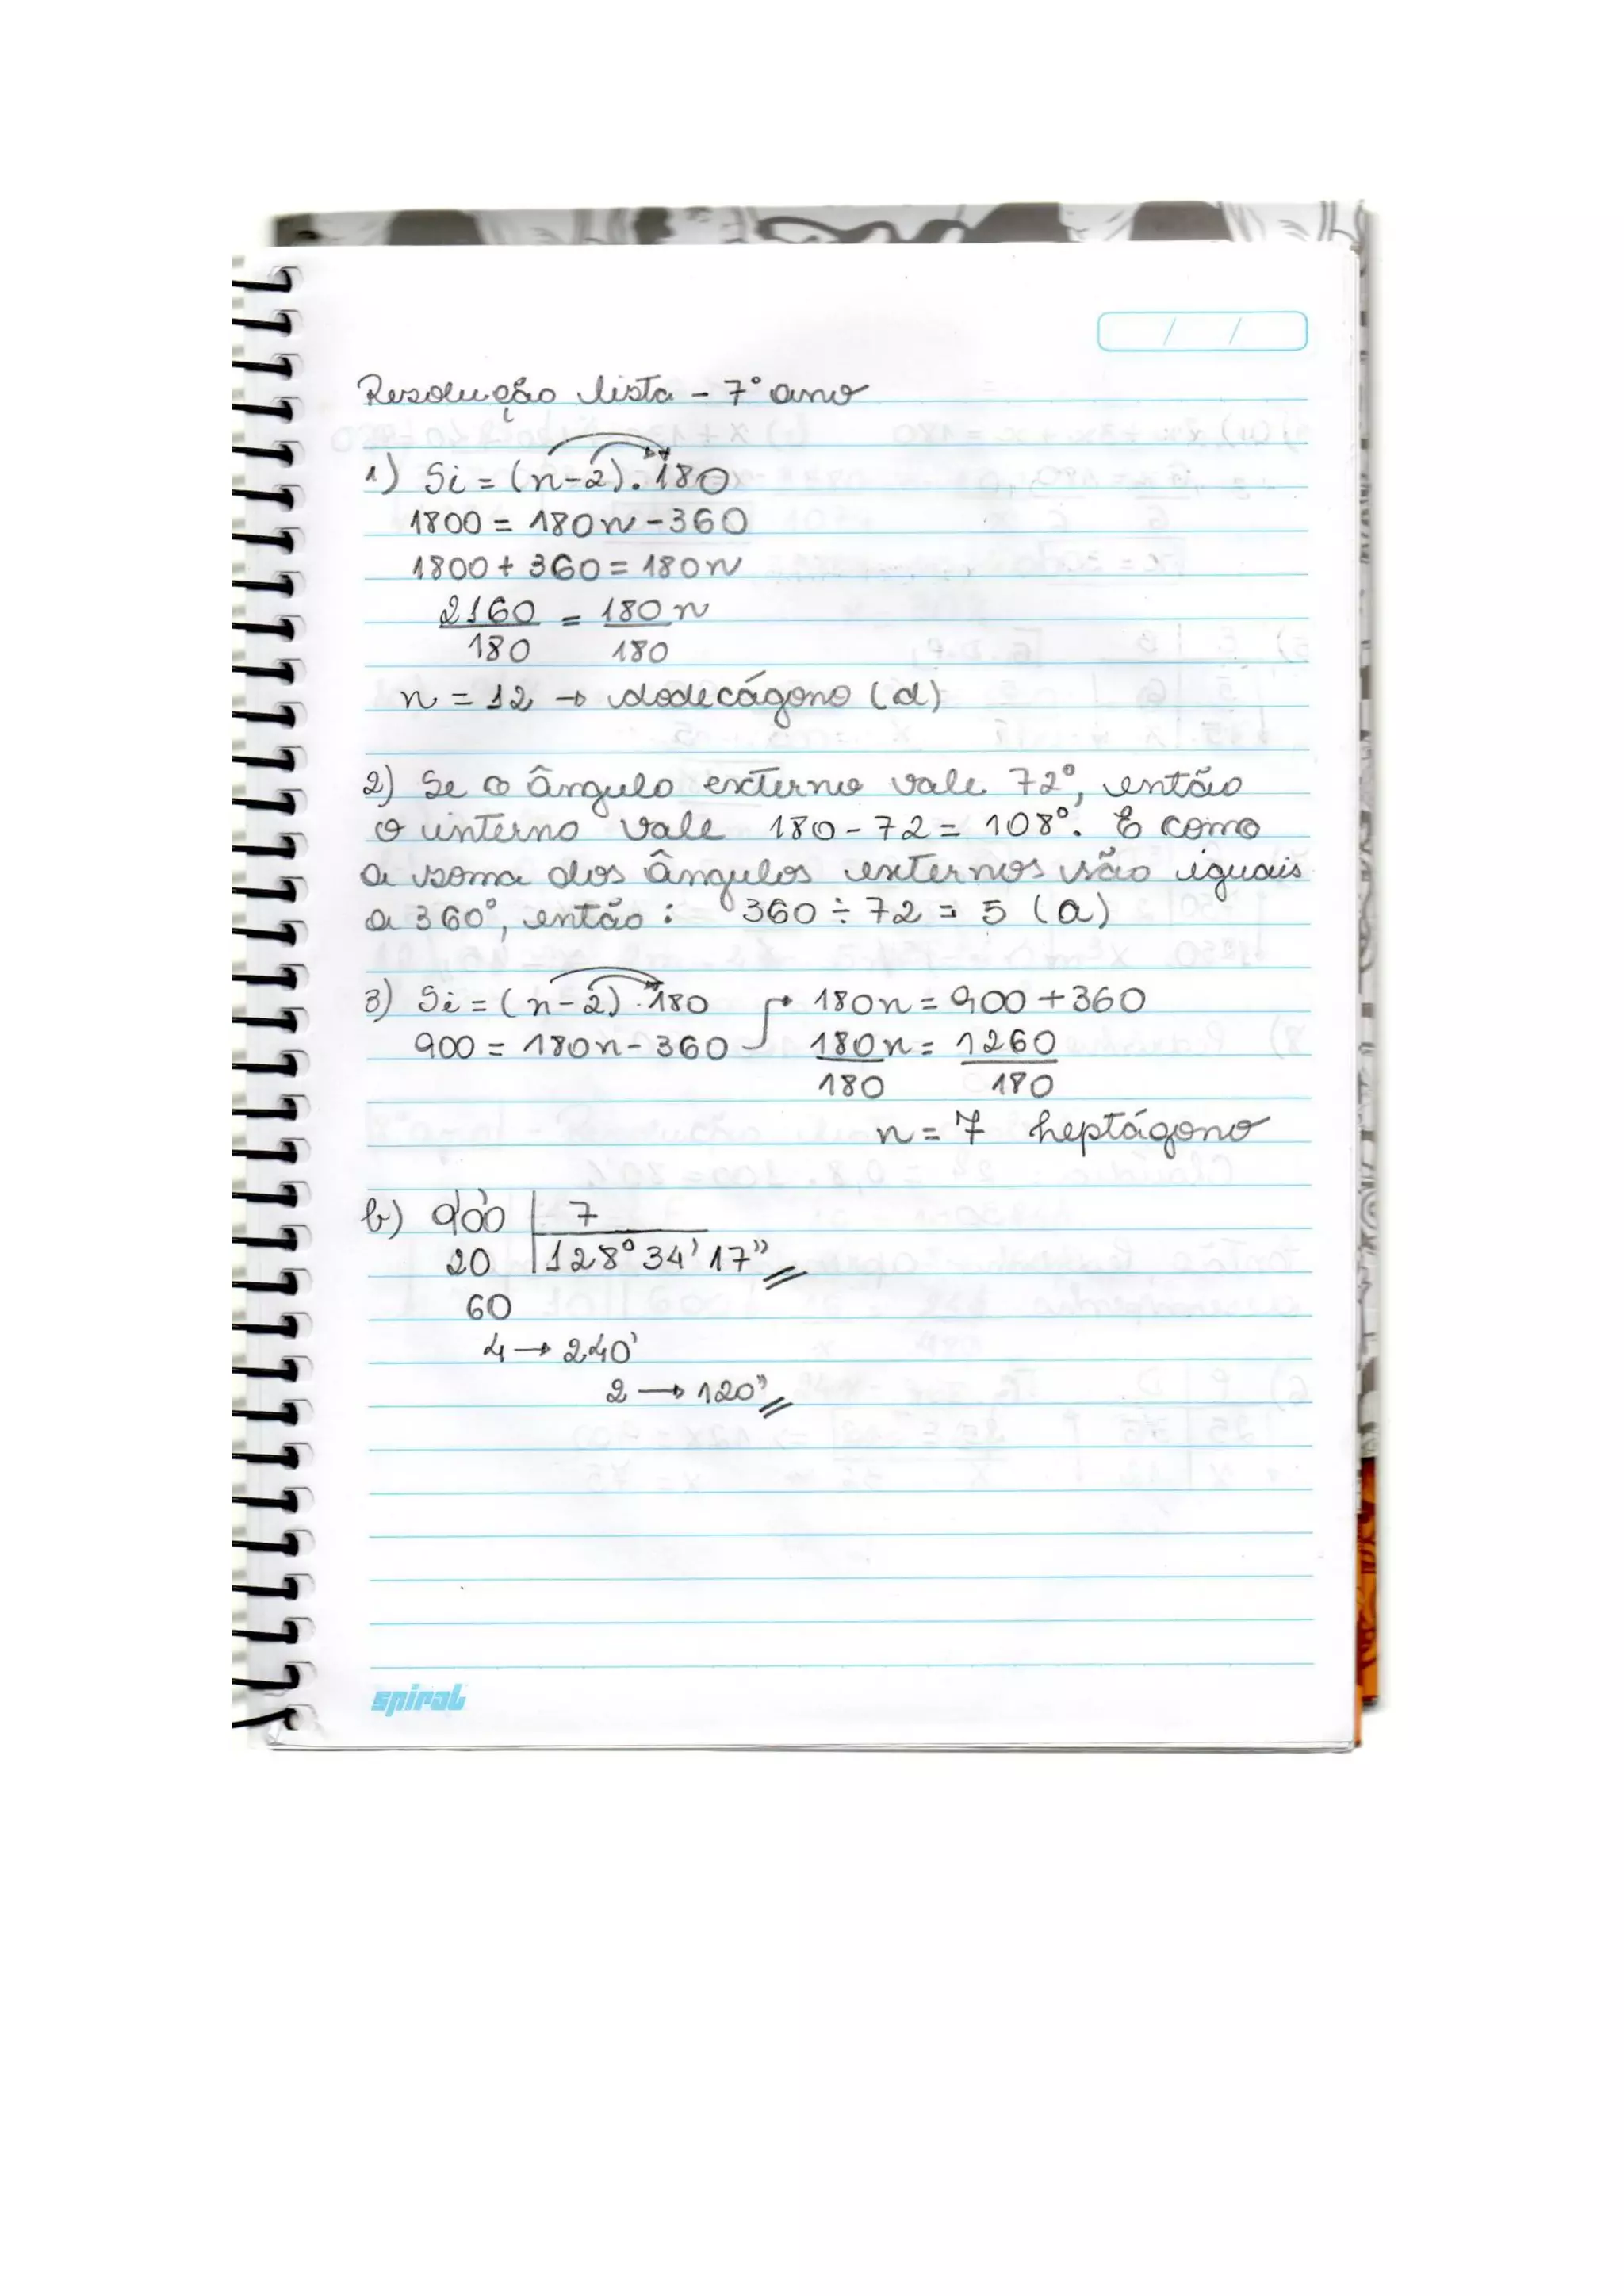 Resolução lista - 7° ano
1) Si = (n-2).180
1800 = 180n - 360
1800 + 360 = 180n
2160 = 180n
180 180
n = 12 → dodecágono (d)
2) Se o ângulo externo vale 72°, então
o interno vale 180 - 72 = 108°. E como
a soma dos ângulos externos são iguais
a 360°, então: 360 ÷ 72 = 5 (a)
3) Si = (n-2).180
900 = 180n - 360
180n = 900 + 360
180n = 1260
180 180
n = 7 heptágono
b) 900 | 7
20 128° 34' 17"
60
4 → 240'
2 → 120"
spiral